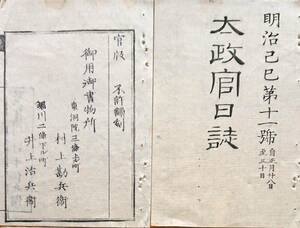 明治己巳第十一號
自正月廿八日
至三十日
太政官日誌
官版
不許翻刻
御用御書物所
東洞院三條上ル町
村上勘兵衛
堀川二條下ル町
井上治兵衛